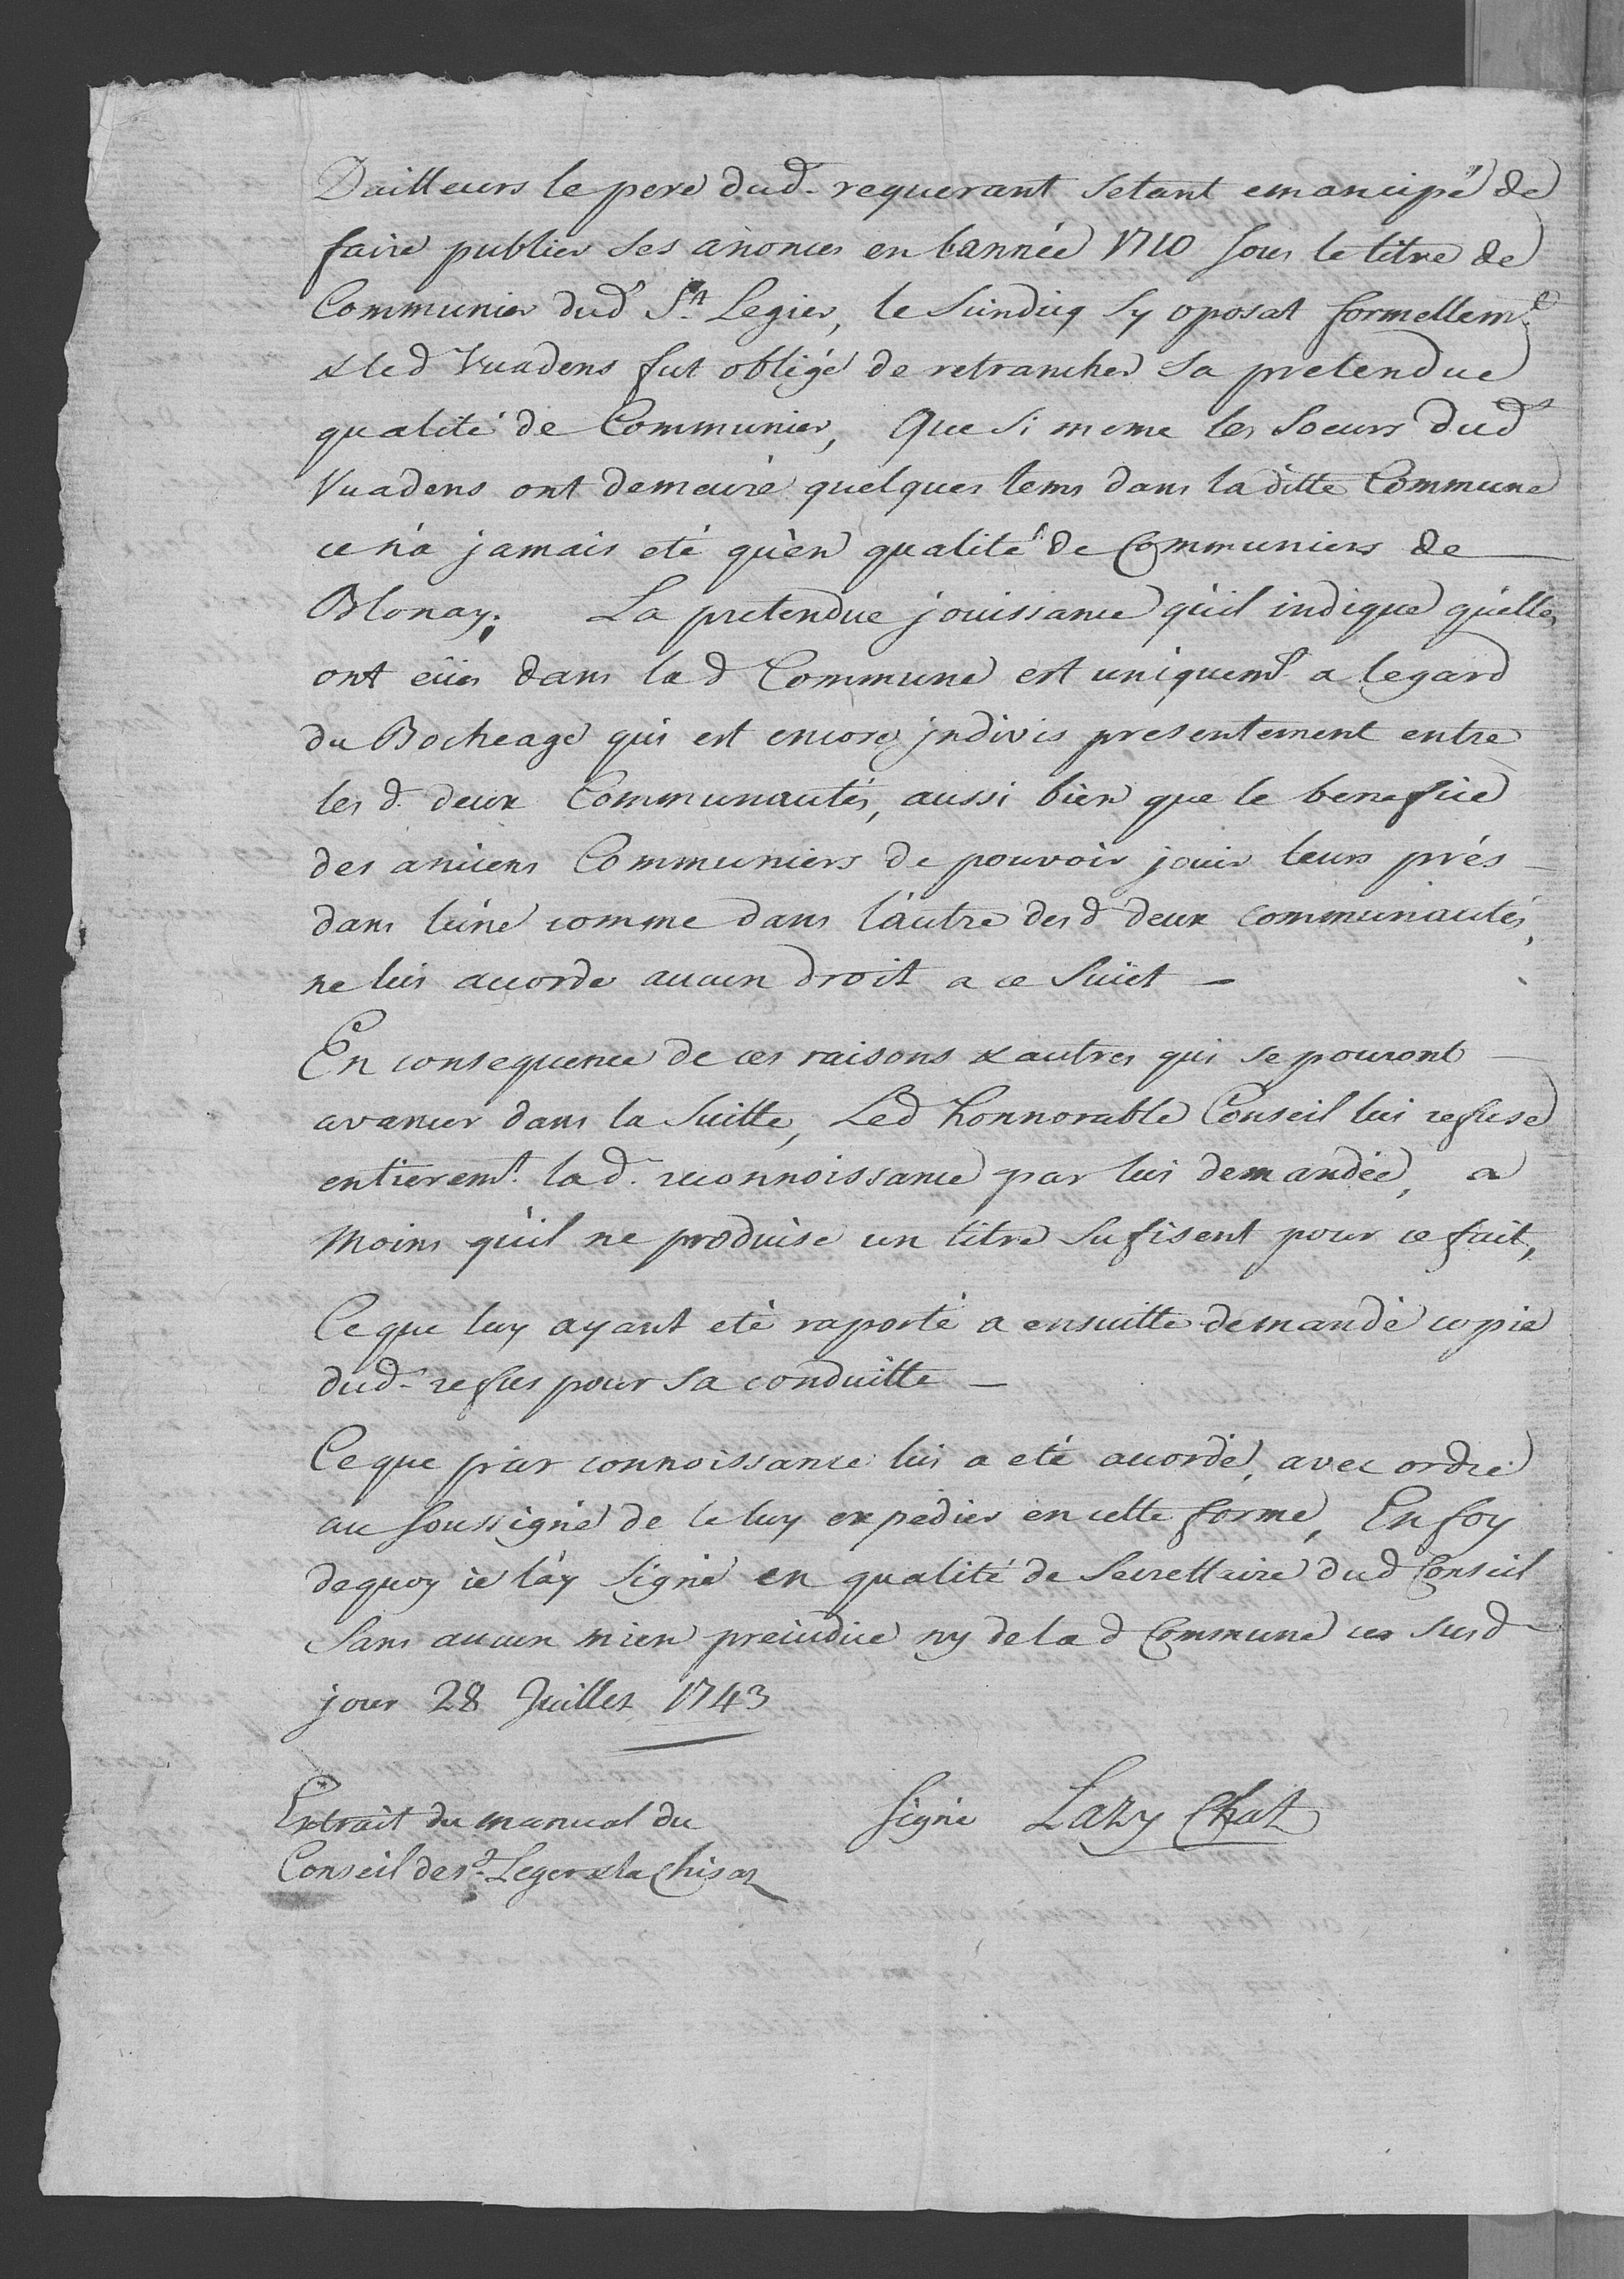 Dailleurs le pere dud. requerant setant emancipé de
faire publier ses anonces en lannée 1710 sous le titre de
Communier dud St. Legier, le Sindiq sy oposat formellemt.
& led Vuadens fut obligé de retrancher sa pretendue
qualité de Communier, Que si meme les Soeurs dud
Vuadens ont demeuré quelques tems dans laditte Commune
ce n'a jamais eté qu'en qualité de Communiers de
Blonay; La pretendue jouissance qu'il indique qu'elles
ont eües dans lad Commune est uniquemt. a legard
du Bocheage qui est encore jndivis presentement entre
les d. deux Communautés, aussi bien que le benefice
des anciens Communiers de pouvoir jouir leurs prés
dans l'une comme dans l'autre desd deux communautés,
ne lui accorde aucun droit a ce sujet –
En consequence de ces raisons & autres qui se pouront
avancer dans la suitte, Led honnorable Conseil lui refuse
entieremt. lad. reconnoissance par lui demandée, a
moins qu'il ne produise un titre sufisent pour ce fait,
Ce que luy ayant eté raporté a ensuitte demandé copie
dud. refus pour sa conduitte –
Ce que par connoissance lui a eté accordé, avec ordre
au soussigné de le luy expedier en cette forme, En foy
dequoy ie l'ay signé en qualité de Secrettaire dud Conseil
sans aucun mien preiudice ny de lad Commune ces susd
jour 28 Juillet 1743
Extrait du manual du
Conseil de st. Leger & la Chisaz
signé Lazy Chat